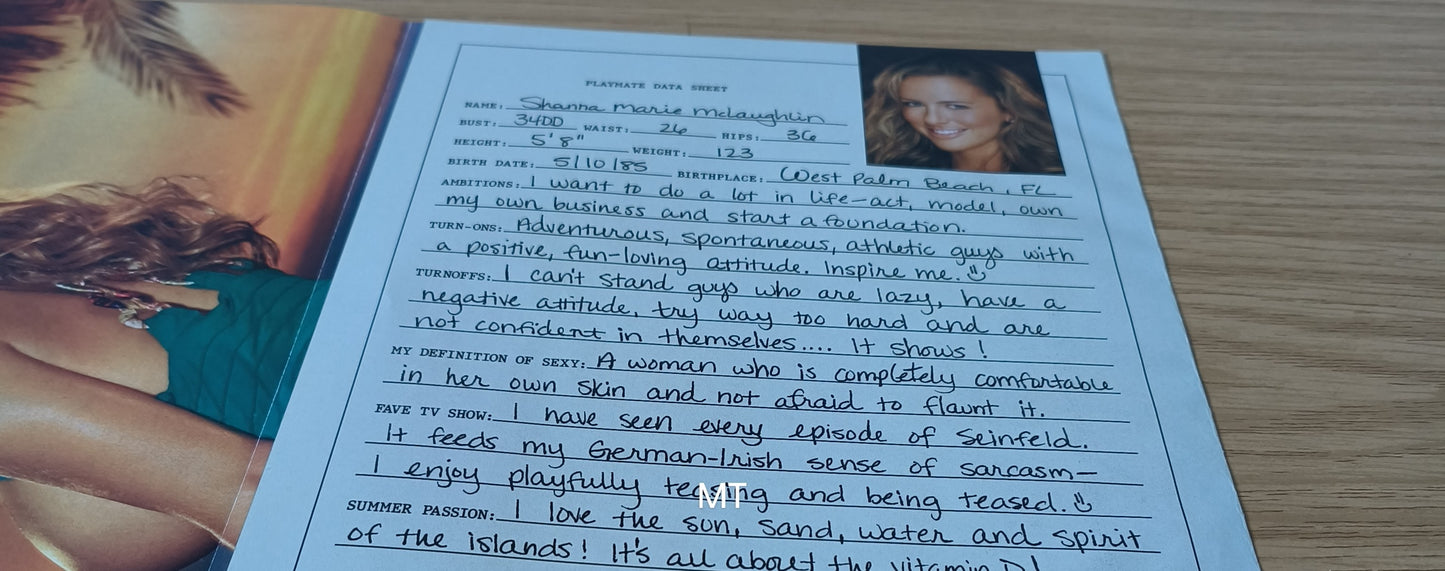 PLAYMATE DATA SHEET
NAME: Shanna Marie McLaughlin
BUST: 34DD WAIST: 26 HIPS: 36
HEIGHT: 5'8" WEIGHT: 123
BIRTH DATE: 5/10/85 BIRTHPLACE: West Palm Beach, FL
AMBITIONS: I want to do a lot in life-act, model, own
my own business and start a foundation.
TURN-ONS: Adventurous, spontaneous, athletic guys with
a positive, fun-loving attitude. Inspire me.
TURNOFFS: I can't stand guys who are lazy, have a
negative attitude, try way too hard and are
not confident in themselves.... It shows!
MY DEFINITION OF SEXY: A woman who is completely comfortable
in her own skin and not afraid to flaunt it.
FAVE TV SHOW: I have seen every episode of Seinfeld.
It feeds my German-Irish sense of sarcasm-
I enjoy playfully teasing and being teased.
MT
SUMMER PASSION: I love the sun, sand, water and spirit
of the islands! It's all about the vitamin D!